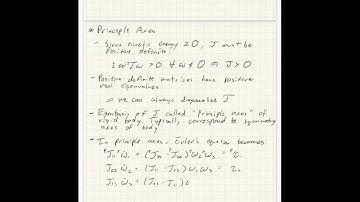 * Principle Axes
- Given kinetic energy ≥ 0, J must be
positive definite:
½ωᵀJω > 0 ∀ ω ≠ 0 ⇒ J > 0
- Positive-definite matrices have positive
real eigenvalues
⇒ we can always diagonalize J
- Eigenbasis of J called "principle axes" of
rigid body. Typically correspond to symmetry
axes of body.
- In principle axes, Euler's equation becomes
J₁₁ω̇₁ + (J₃₃ - J₂₂)ω₂ω₃ = τ₁
J₂₂ω̇₂ + (J₁₁ - J₃₃)ω₁ω₃ = τ₂
J₃₃ω̇₃ + (J₂₂ - J₁₁)ω